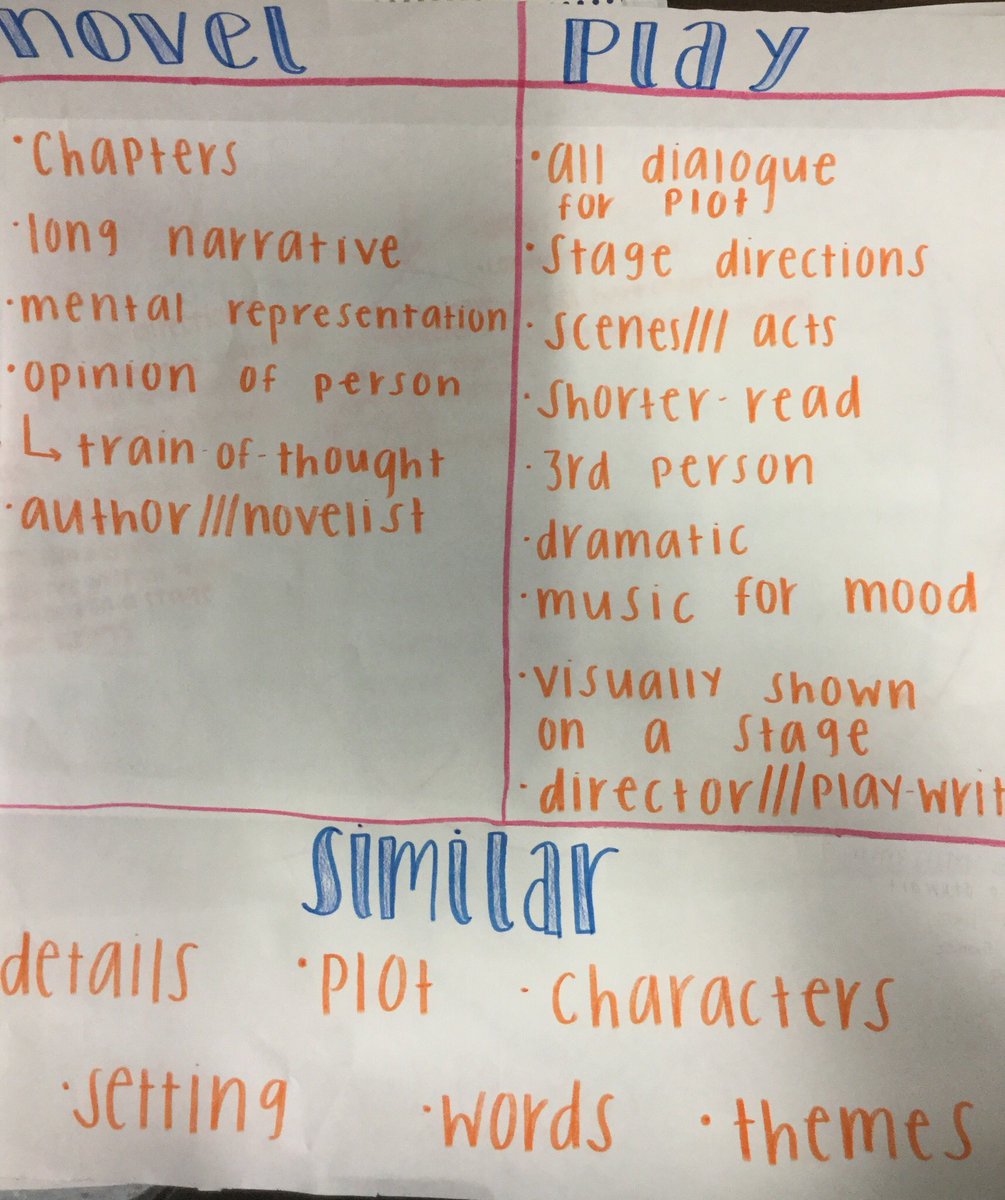 novel
• Chapters
• long narrative
• mental representation
• opinion of person
↳ train-of-thought
• author///novelist
Play
• all dialogue
for plot
• stage directions
• scenes/// acts
• shorter-read
• 3rd person
• dramatic
• music for mood
• visually shown
on a stage
• director///play-writ
similar
details • plot • characters
• setting • words • themes